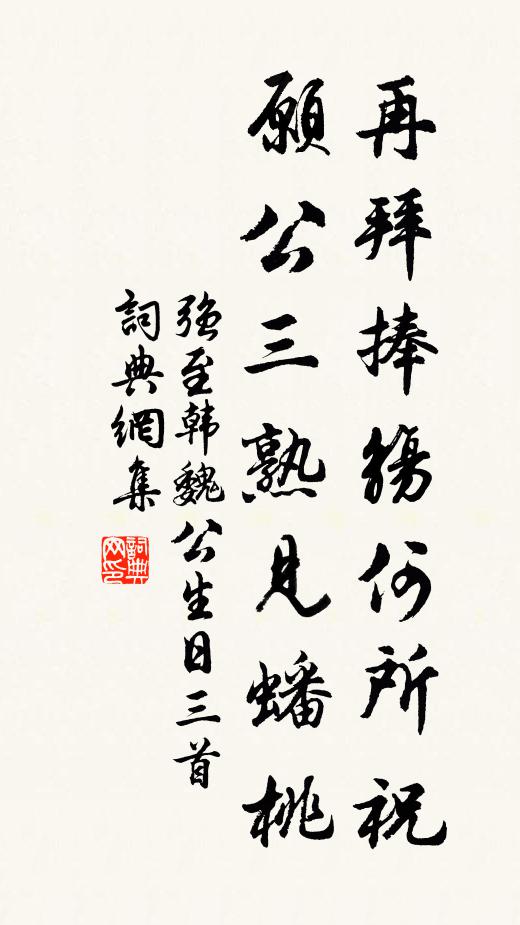 再拜捧觴何所祝
願公三熟見蟠桃
強至韩魏公生日三首
詞典網集
詞典网印